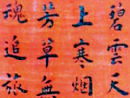 碧雲天
上寒烟
芳草無
魂追旅